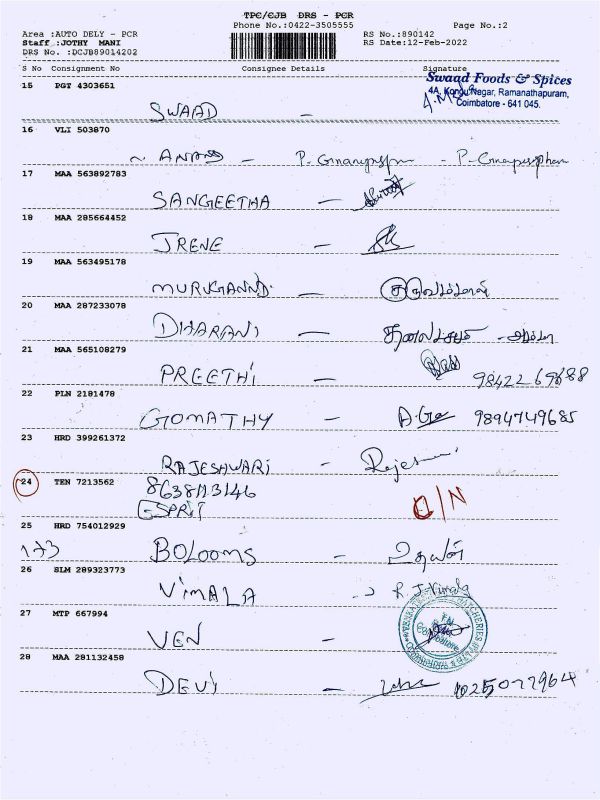 TPC/CJB DRS - PCR
Phone No.:0422-3505555 Page No.:2
Area :AUTO DELY - PCR RS No.:890142
Staff :JOTHY MANI RS Date:12-Feb-2022
DRS No. :DCJB89014202
S No Consignment No Consignee Details Signature
Swaad Foods & Spices
4A, Kongu Nagar, Ramanathapuram,
Coimbatore - 641 045.
15 PGT 4303651
SWAAD -
16 VLI 503870
~ ANAND -
17 MAA 563892783
SANGEETHA -
18 MAA 285664452
IRENE -
19 MAA 563495178
MURUGANND -
20 MAA 287233078
DHARANI -
21 MAA 565108279
PREETHI - 9842269688
22 PLN 2181478
GOMATHY - 9894749685
23 HRD 399261372
RAJESHWARI -
24 TEN 7213562
8638113146
ESPRIT O/N
25 HRD 754012929
173 BOLOOMS - உதயன்
26 SLM 289323773
VIMALA - R.J.Vimala
27 MTP 667994
VEN -
28 MAA 281132458
DEVI -